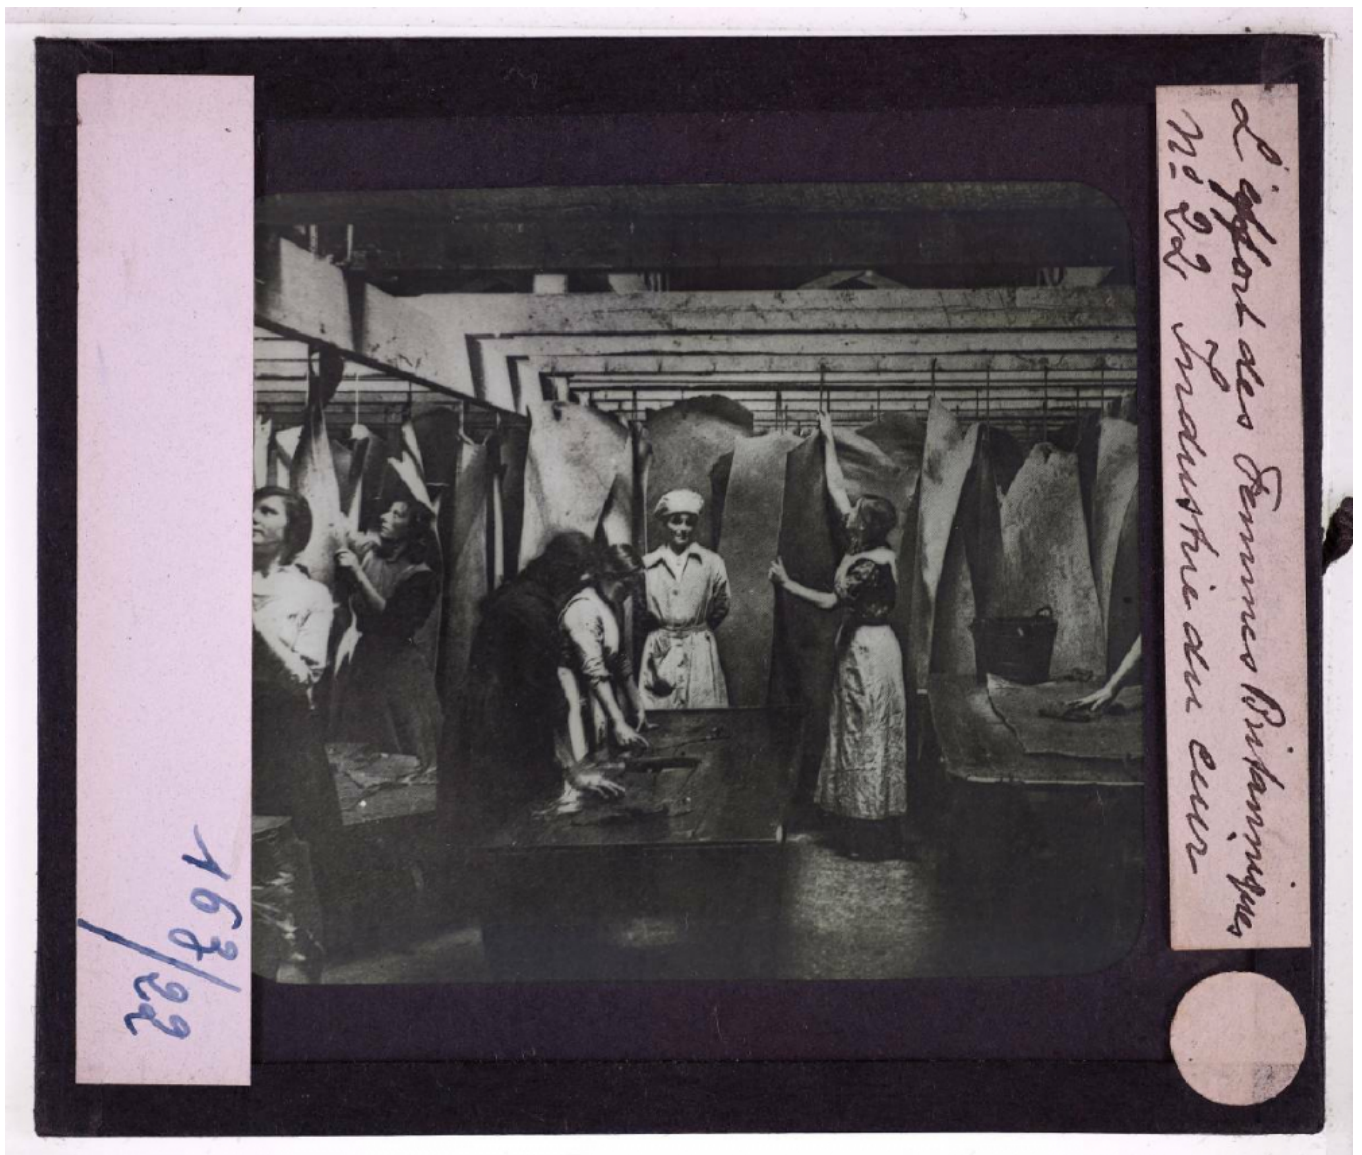 L'effort des Femmes Britanniques
No 22 Industrie du cuir
163/22